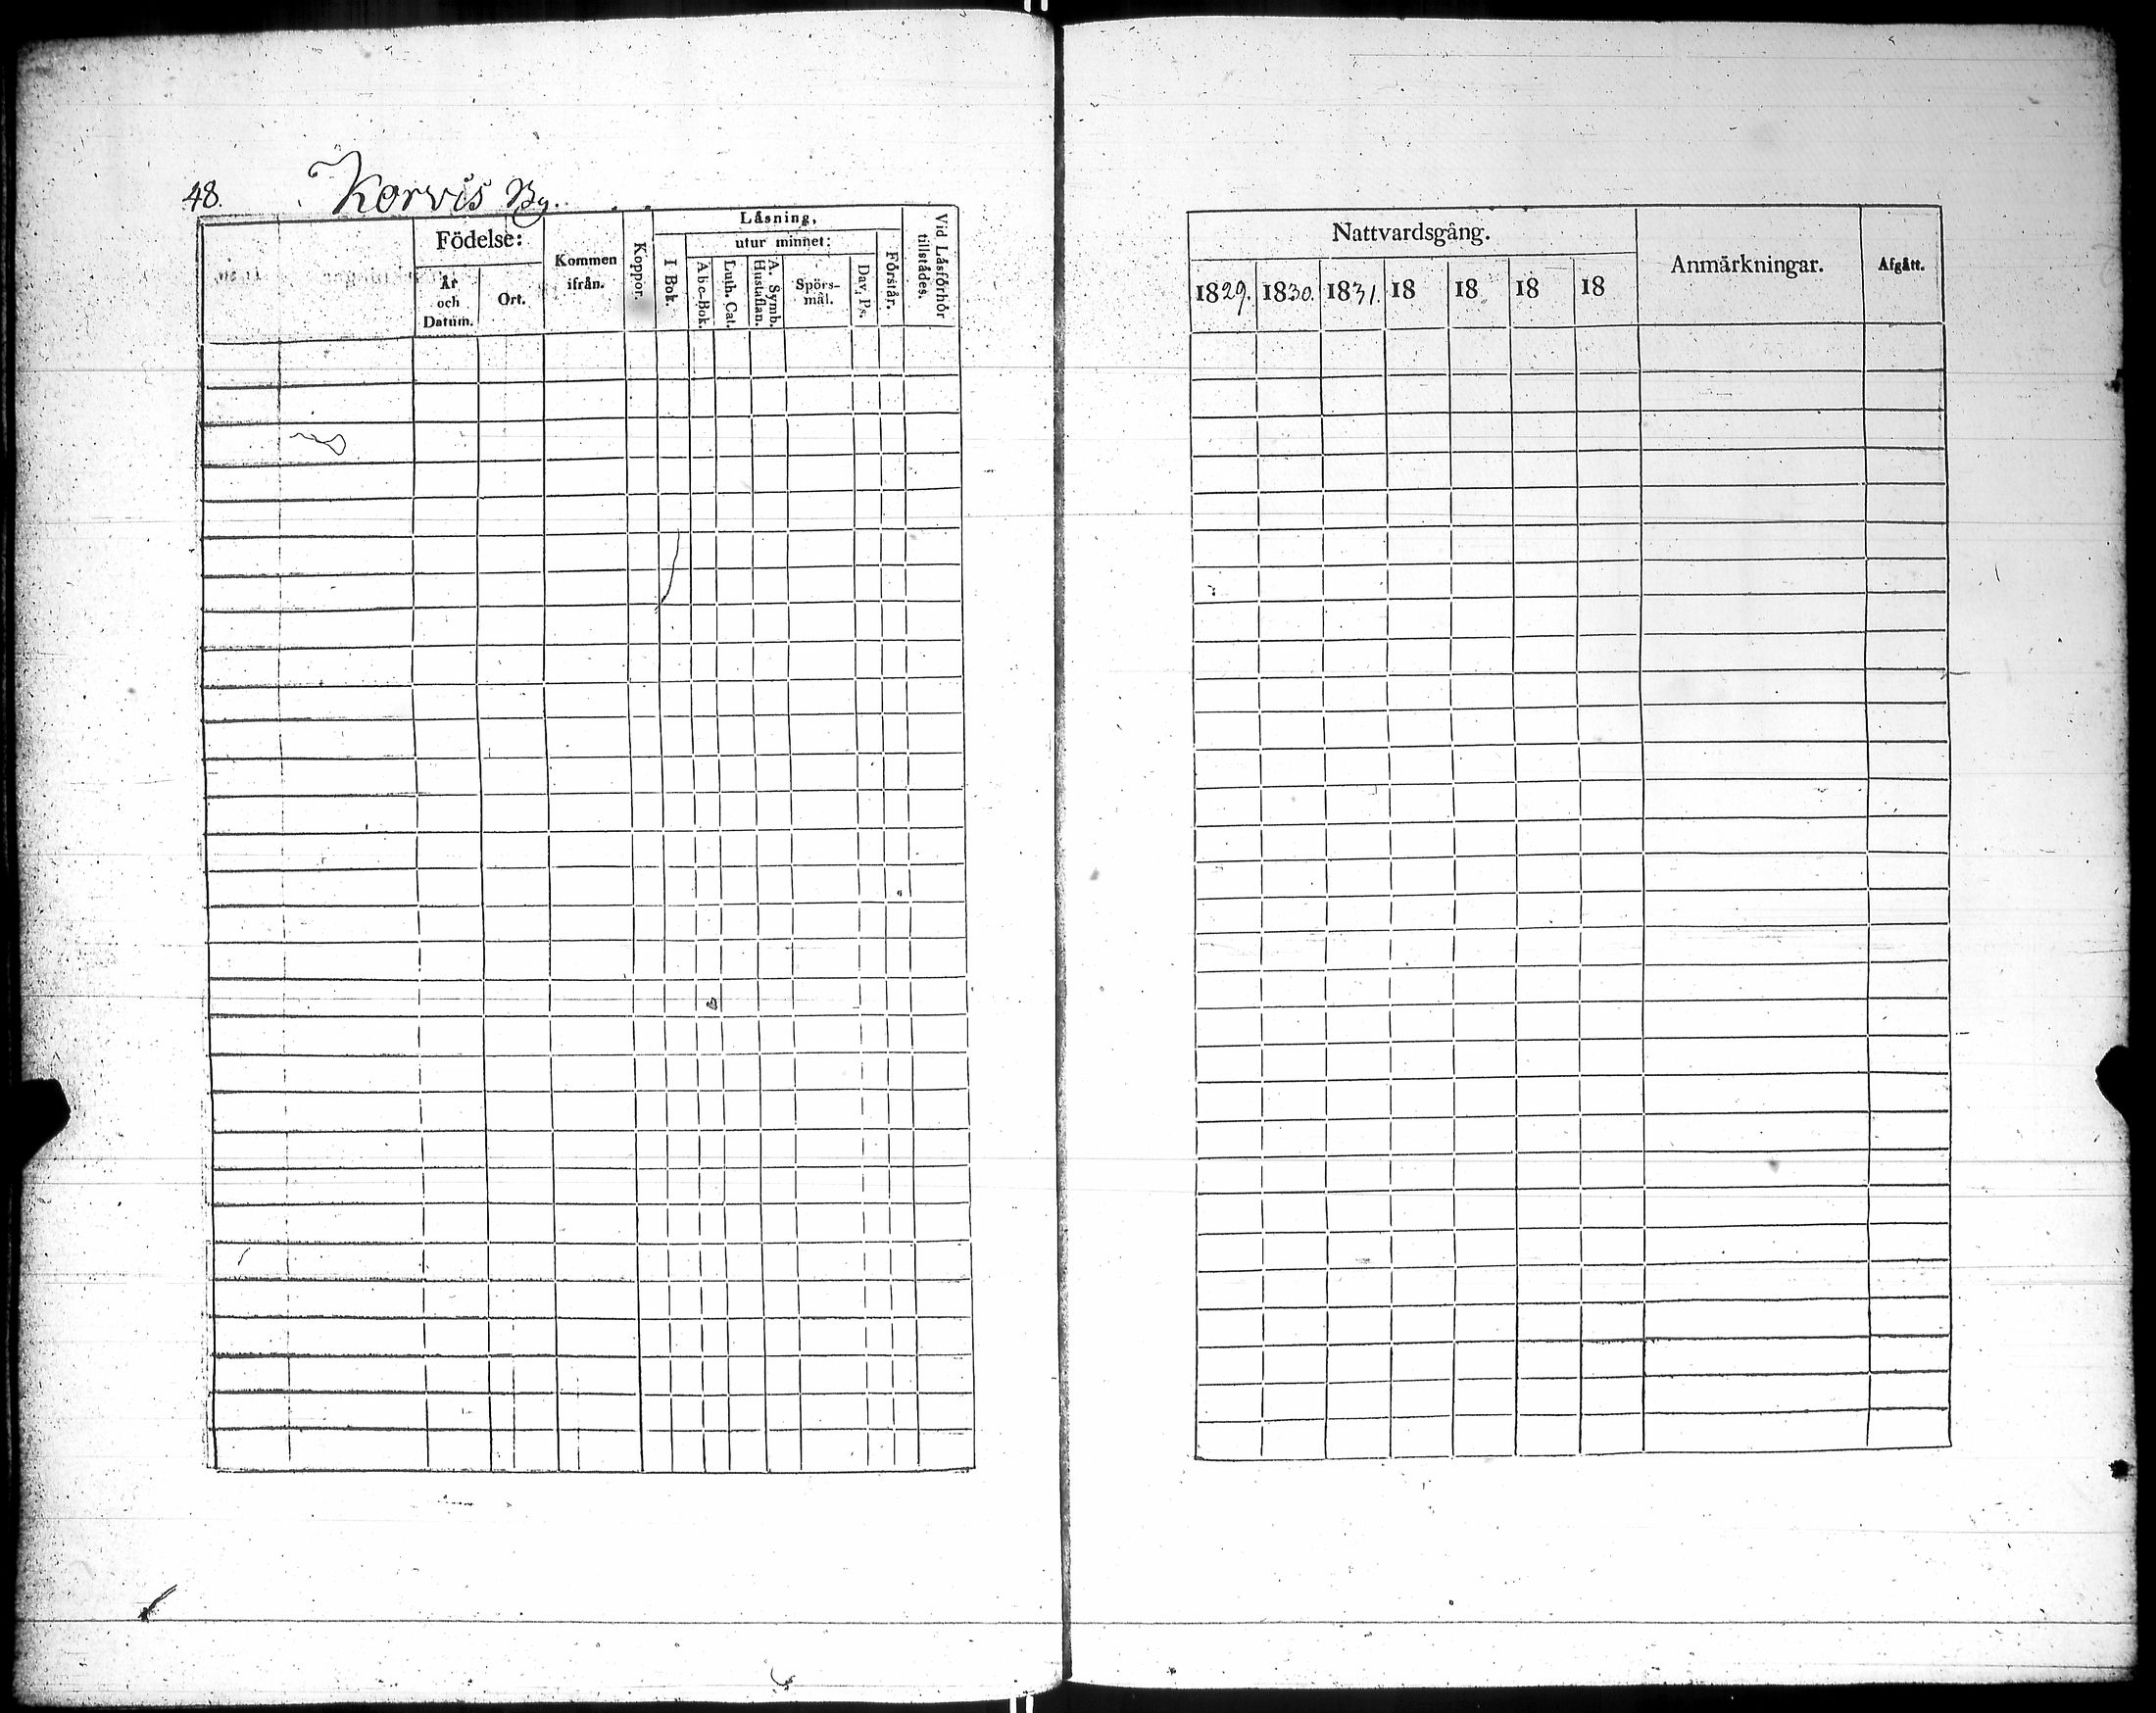 48. Korvis By.
Födelse:
År
och
Datum.
Ort.
Kommen
ifrån.
Koppor.
Läsning,
I Bok.
utur minnet:
Abc-Bok.
Luth. Cat.
A. Symb.
Hustaflan.
Spörs-
mål.
Dav. Ps.
Förstår.
Vid Läsförhör
tillstädes.
Nattvardsgång.
1829. 1830. 1831. 18 18 18 18
Anmärkningar.
Afgått.